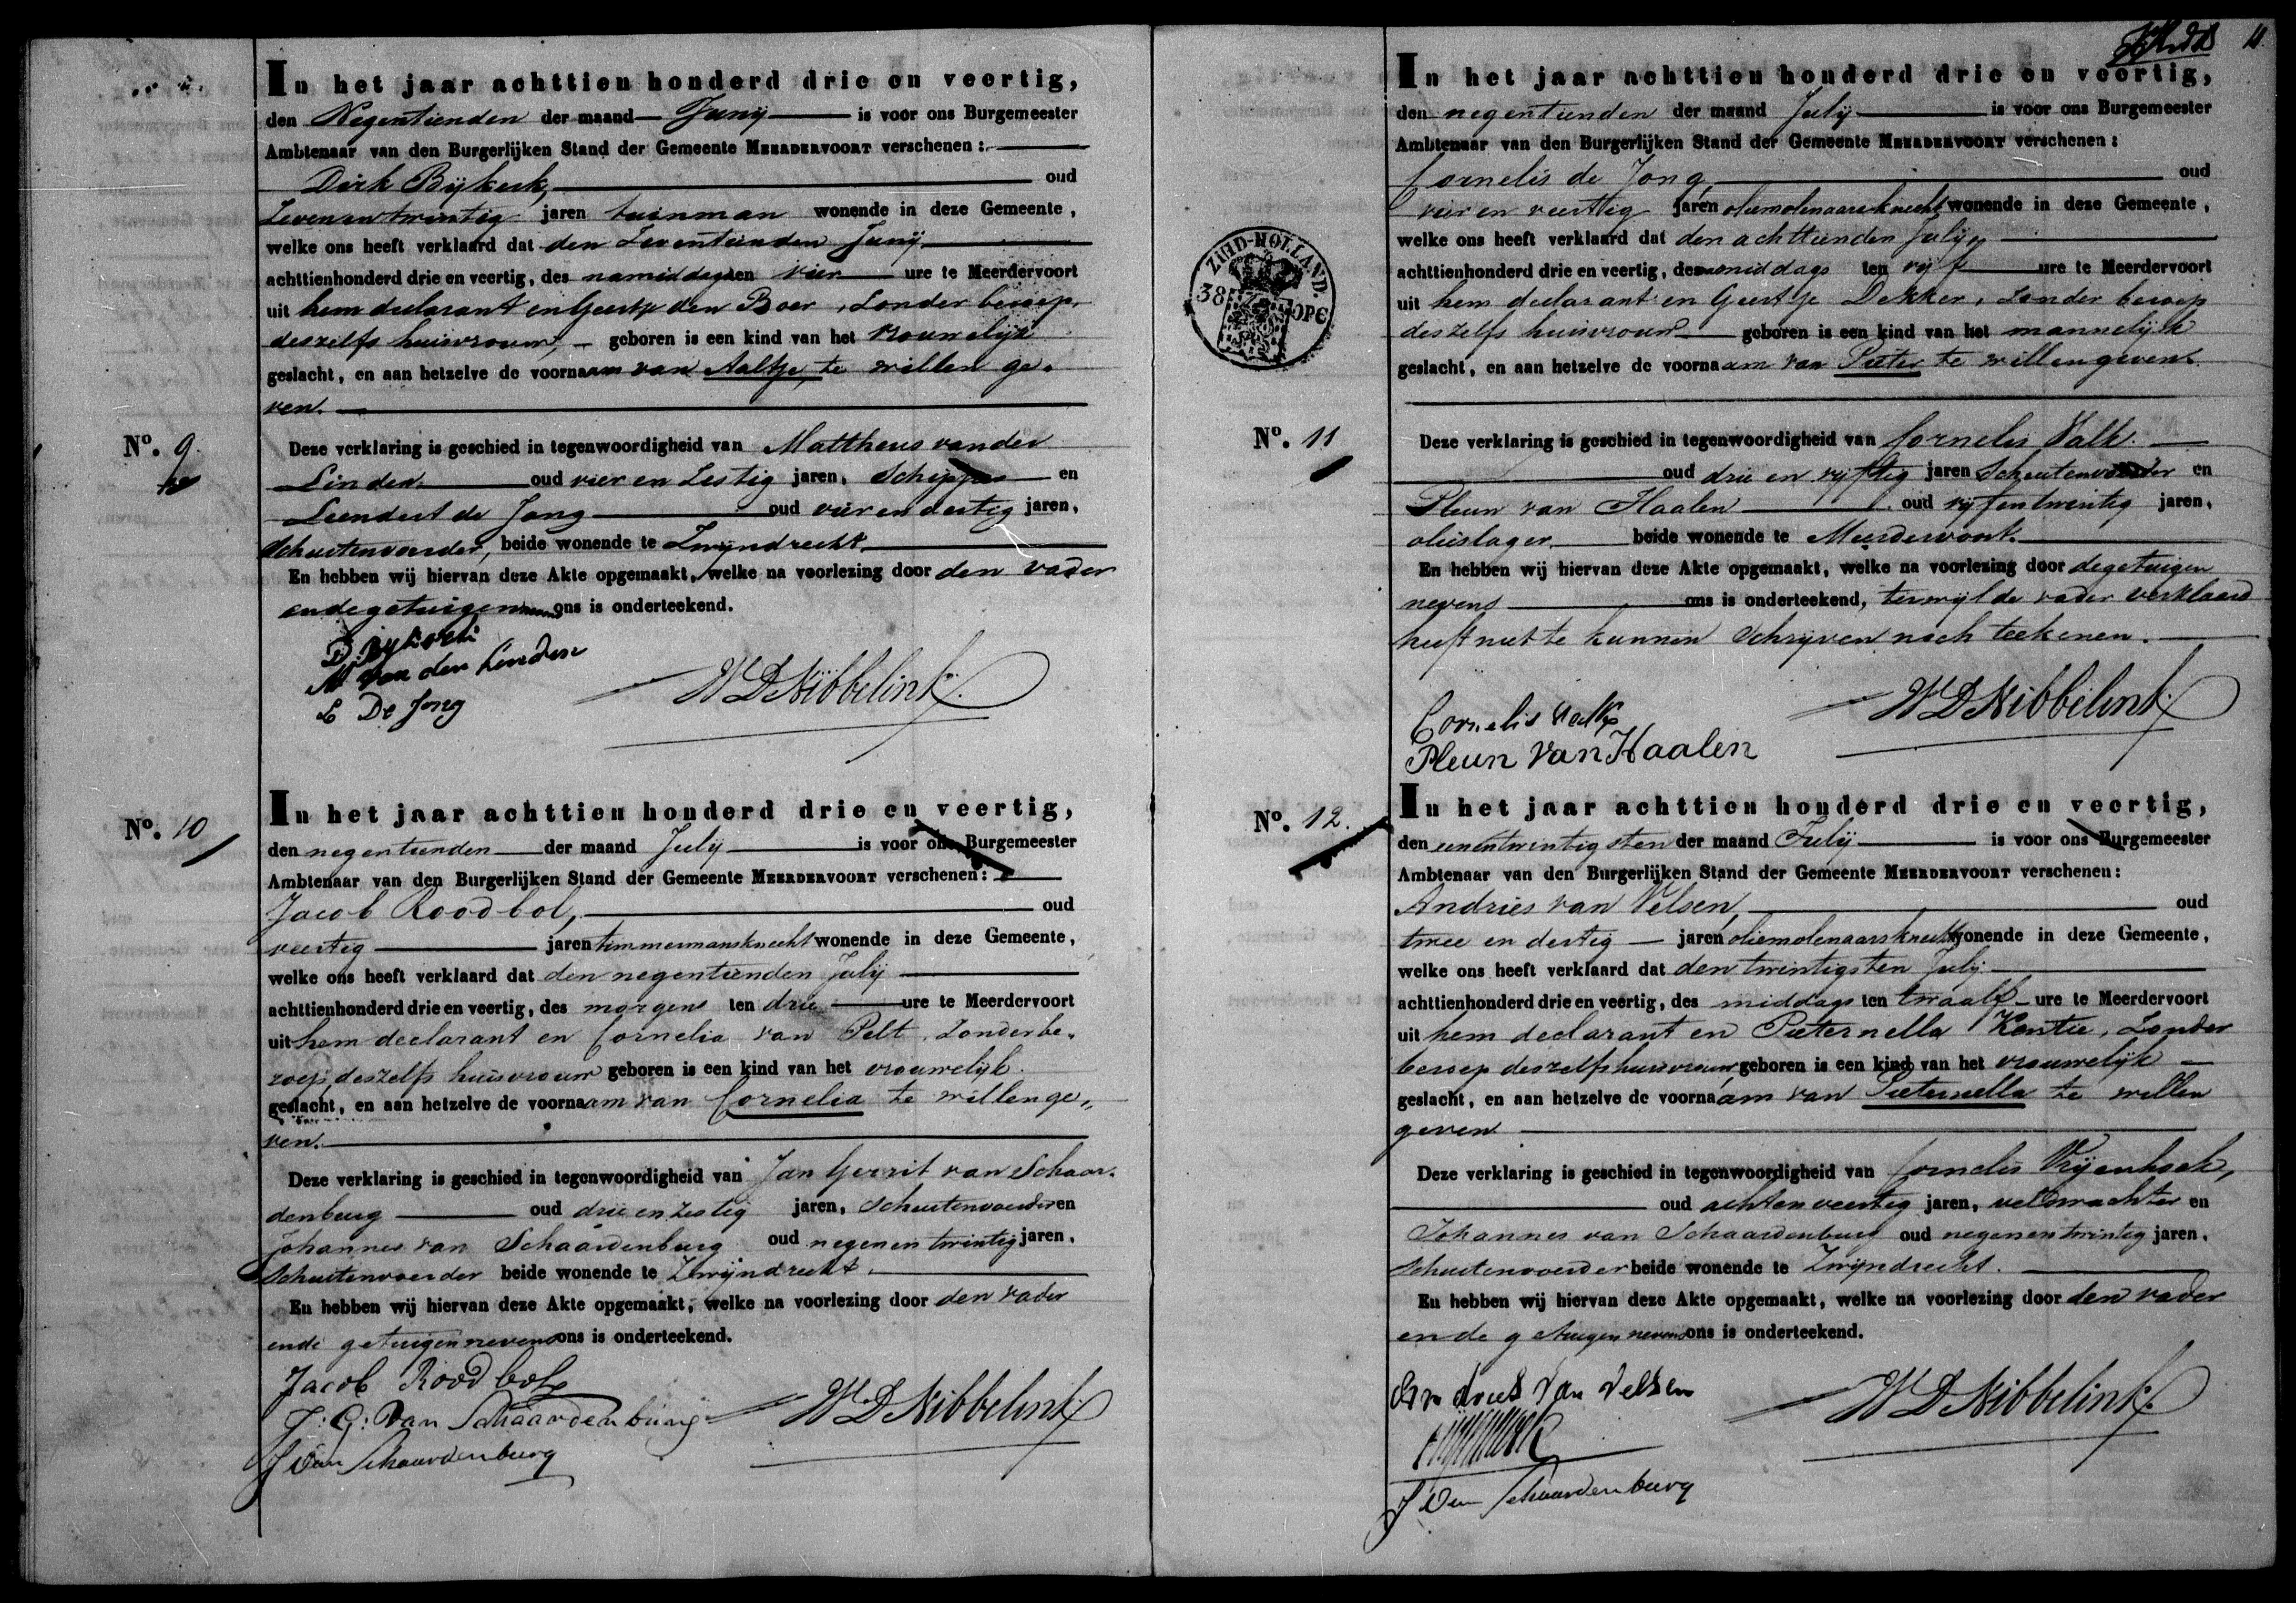 In het jaar achttien honderd drie en veertig,
den Negentienden der maand Junij is voor ons Burgemeester
Ambtenaar van den Burgerlijken Stand der Gemeente MEERDERVOORT verschenen:
Dirk Bijkerk, oud
Zevenentwintig jaren tuinman wonende in deze Gemeente,
welke ons heeft verklaard dat den Zeventienden Junij
achttienhonderd drie en veertig, des namiddags ten vier ure te Meerdervoort
uit hem declarant en Geertje den Boer, Zonder beroep,
deszelfs huisvrouw, geboren is een kind van het vrouwelijk
geslacht, en aan hetzelve de voornaam van Aaltje, te willen ge-
ven.
No. 9.
Deze verklaring is geschied in tegenwoordigheid van Mattheus van der
Linden oud vier en Zestig jaren, Schipper en
Leendert de Jong oud vier en dertig jaren,
Schuitenvoerder, beide wonende te Zwijndrecht
En hebben wij hiervan deze Akte opgemaakt, welke na voorlezing door den vader
en de getuigen nevens ons is onderteekend.
D. Bijkerk
M van der Linden
L De Jong
W D Nibbelink
No. 10
In het jaar achttien honderd drie en veertig,
den negentienden der maand Julij is voor ons Burgemeester
Ambtenaar van den Burgerlijken Stand der Gemeente MEERDERVOORT verschenen:
Jacob Roodbol, oud
veertig jaren timmermansknecht wonende in deze Gemeente,
welke ons heeft verklaard dat den negentienden Julij
achttienhonderd drie en veertig, des morgens ten drie ure te Meerdervoort
uit hem declarant en Cornelia van Pelt, Zonder be-
roep, deszelfs huisvrouw geboren is een kind van het vrouwelijk
geslacht, en aan hetzelve de voornaam van Cornelia te willen ge-
ven.
Deze verklaring is geschied in tegenwoordigheid van Jan Gerrit van Schaar-
denburg oud drie en zestig jaren, Schuitenvoerder en
Johannes van Schaardenburg oud negen en twintig jaren,
Schuitenvoerder beide wonende te Zwijndrecht.
En hebben wij hiervan deze Akte opgemaakt, welke na voorlezing door den vader
en de getuigen nevens ons is onderteekend.
Jacob Roodbol
J: G: Van Schaardenburg
J Van Schaardenburg
W D Nibbelink
11
In het jaar achttien honderd drie en veertig,
den negentienden der maand Julij is voor ons Burgemeester
Ambtenaar van den Burgerlijken Stand der Gemeente MEERDERVOORT verschenen:
Cornelis de Jong oud
vier en veertig jaren oliemolenaarsknecht wonende in deze Gemeente,
welke ons heeft verklaard dat den achttienden Julij
achttienhonderd drie en veertig, des middags ten vijf ure te Meerdervoort
uit hem declarant en Geertje Dekker, Zonder beroep
deszelfs huisvrouw geboren is een kind van het mannelijk
geslacht, en aan hetzelve de voornaam van Pieter te willen geven.
ZUID-HOLLAND.
38 OPC
No. 11
Deze verklaring is geschied in tegenwoordigheid van Cornelis Valk
oud drie en vijftig jaren Schuitenvoerder en
Pleun van Haalen oud vijfentwintig jaren,
olieslager beide wonende te Meerdervoort.
En hebben wij hiervan deze Akte opgemaakt, welke na voorlezing door de getuigen
nevens ons is onderteekend, terwijl de vader verklaard
heeft niet te kunnen Schrijven noch teekenen.
Cornelis Valk
Pleun van Haalen
W D Nibbelink
No. 12.
In het jaar achttien honderd drie en veertig,
den eenentwintigsten der maand Julij is voor ons Burgemeester
Ambtenaar van den Burgerlijken Stand der Gemeente MEERDERVOORT verschenen:
Andries van Velsen, oud
twee en dertig jaren oliemolenaarsknecht wonende in deze Gemeente,
welke ons heeft verklaard dat den twintigsten Julij
achttienhonderd drie en veertig, des middags ten twaalf ure te Meerdervoort
uit hem declarant en Pieternella Kentie, Zonder
beroep deszelfs huisvrouw, geboren is een kind van het vrouwelijk
geslacht, en aan hetzelve de voornaam van Pieternella te willen
geven
Deze verklaring is geschied in tegenwoordigheid van Cornelis Vrijenhoek,
oud achtenveertig jaren, veldwachter en
Johannes van Schaardenburg oud negenentwintig jaren,
Schuitenvoerder beide wonende te Zwijndrecht.
En hebben wij hiervan deze Akte opgemaakt, welke na voorlezing door den vader
en de getuigen nevens ons is onderteekend.
Andries Van Velsen
J Van Schaardenburg
W D Nibbelink